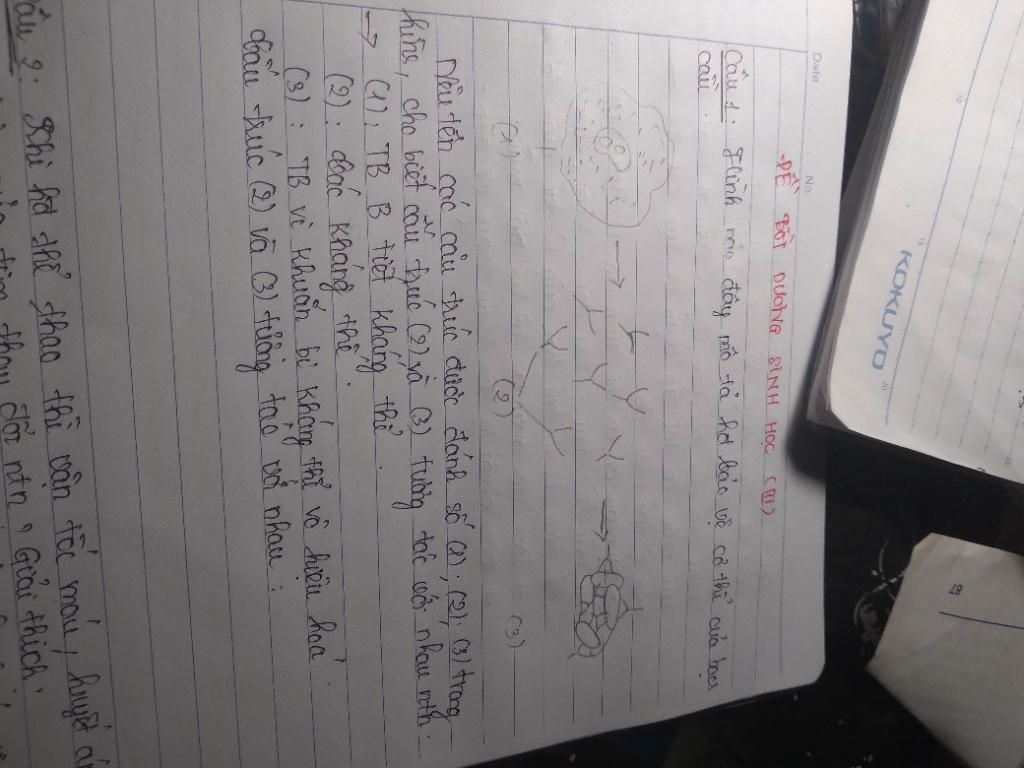 KOKUYO
87
Date
No.
ĐỀ BỒI DƯỠNG SINH HỌC (III)
Câu 1. Hình dưới đây mô tả hđ bảo vệ cơ thể của bạch
cầu.
(1)
(2)
(3)
Nêu tên các cấu trúc được đánh số (1), (2), (3) trong
hình, cho biết cấu trúc (2) và (3) tương tác với nhau ntn.
→ (1): TB B tiết kháng thể.
(2): các kháng thể.
(3): TB vi khuẩn bị kháng thể vô hiệu hoá.
Cấu trúc (2) và (3) tương tác với nhau:
Câu 2: Khi hđ thể thao thì vận tốc máu, huyết áp
thay đổi ntn? Giải thích.